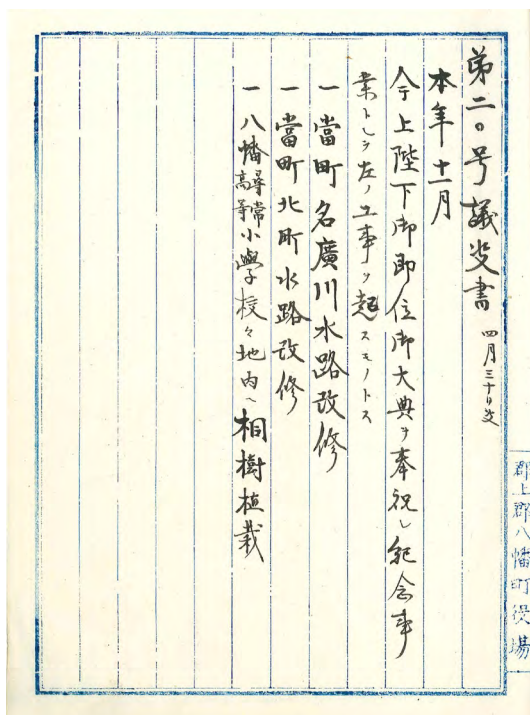 第二〇号議案書 四月三十日受
本年十一月
今上陛下御即位御大典ヲ奉祝シ紀念事
業トシテ左ノ工事ヲ起スモノトス
一當町名廣川水路改修
一當町北町水路改修
一八幡尋常高等小學校々地内ヘ桐樹植栽
郡上郡八幡町役場